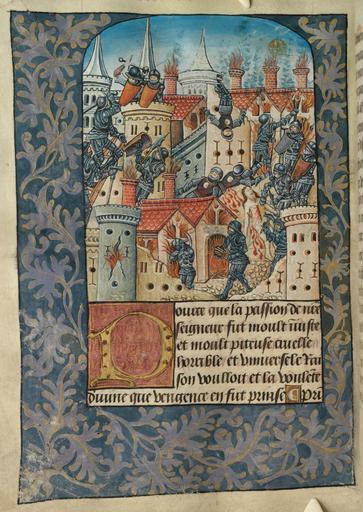 Pource que la passion de nre
seigneur fut moult iniuste
et moult piteuse cruelle
horrible et vniuerselle rai
son voullou et la voulete
diuine que vengence en fut prinse Pri